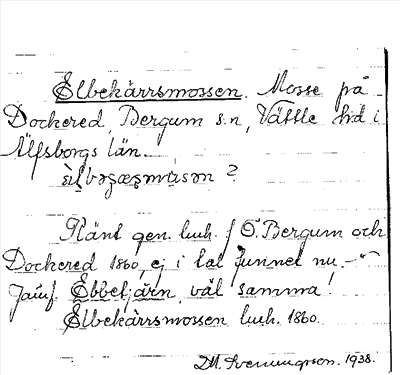 Elbekärrsmossen. Mosse på
Dockered, Bergum s:n, Vättle hd i
Älfsborgs län.
?
Känt gen. lmh. f Ö. Bergum och
Dockered 1860, ej i tal funnet nu. –"–
Jämf. Ebbetjärn, väl samma!
Elbekärrsmossen lmh. 1860.
D.M. Svenungsson. 1938.